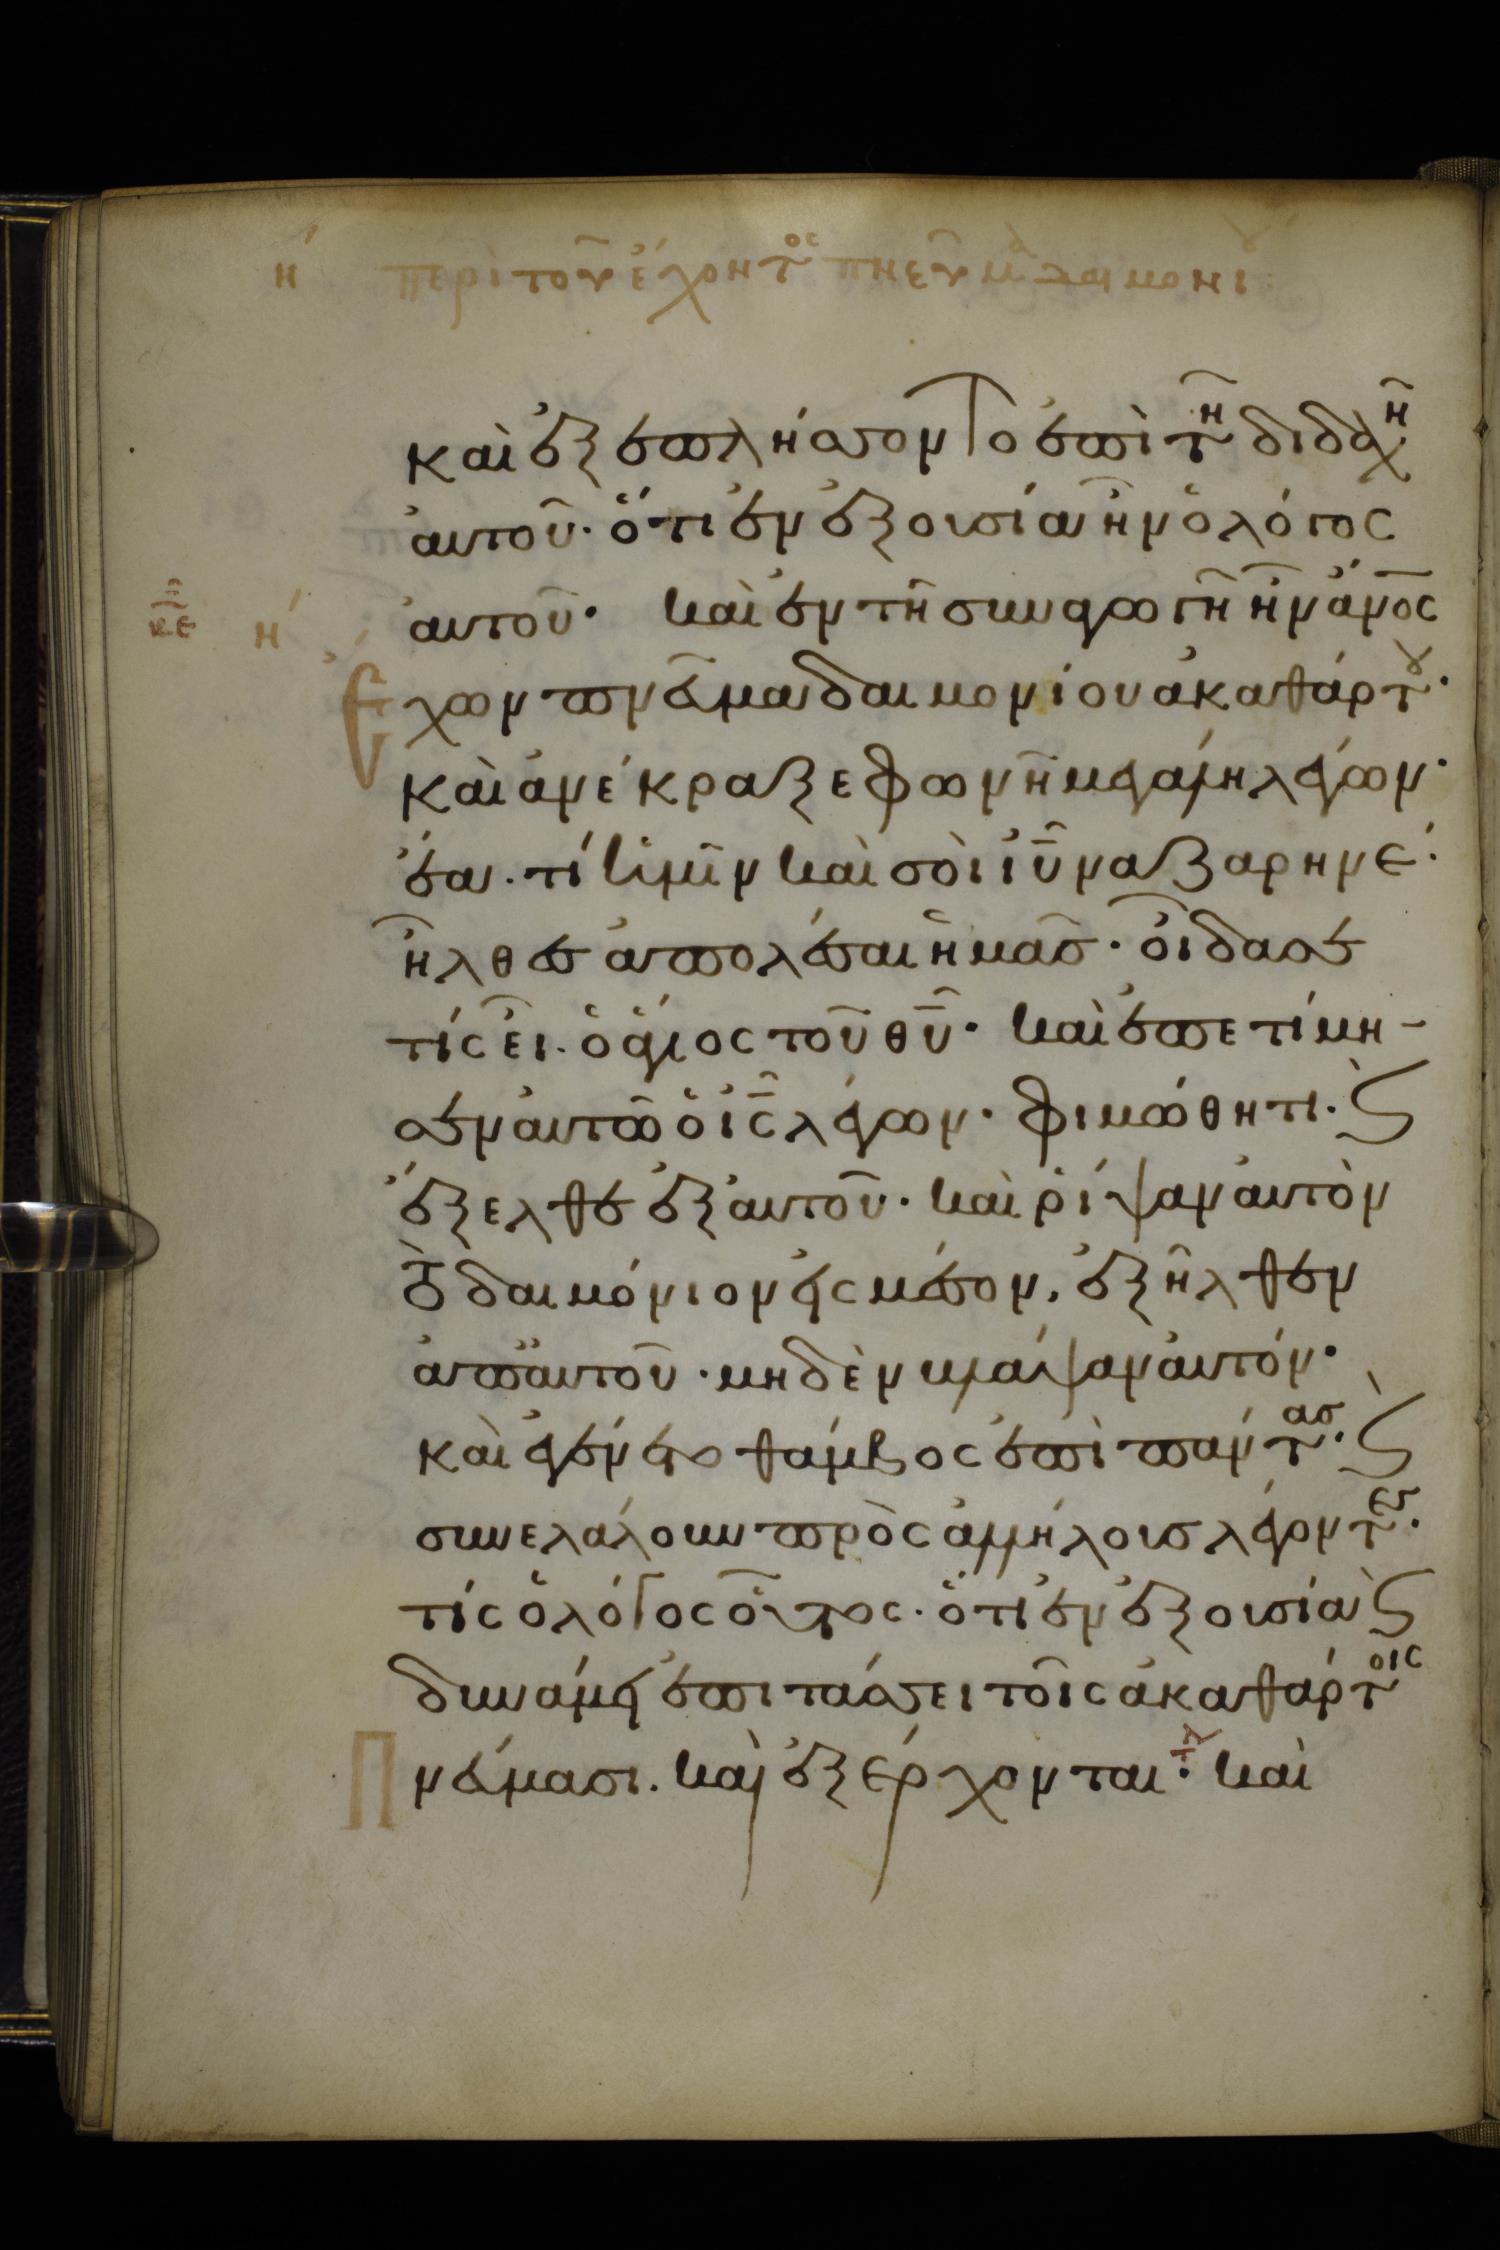 η´ περὶ τοῦ ἔχοντος πνεῦμα δαιμονίου
καὶ ἐξεπλήσσοντο ἐπὶ τῆ διδαχῆ
αὐτοῦ· ὅτι ἐν ἐξουσία ἦν ὁ λόγος
αὐτοῦ· καὶ ἐν τῆ συναγωγῆ ἦν ἄν̅ο̅ς
κε η´
ἔχων πνεῦμα δαιμονίου ἀκαθάρτου·
καὶ ἀνέκραξε φωνῆ μεγάλη λέγων·
ἔα· τί ἡμῖν καὶ σοὶ ι̅υ̅ ναζαρηνέ·
ἦλθες ἀπολέσαι ἡμᾶς· οἶδα σε
τίς εἶ· ὁ ἅγιος τοῦ θ̅υ̅· καὶ ἐπετίμη-
σεν αὐτῶ ὁ ι̅ς̅ λέγων· φιμώθητι· ϗ
ἔξελθε ἐξ αὐτοῦ· καὶ ῥίψαν αὐτὸν
τὸ δαιμόνιον εἰς μέσον, ἐξῆλθεν
ἀπ' αὐτοῦ· μηδὲν βλάψαν αὐτόν·
καὶ ἐγένετο θάμβος ἐπὶ πάντας· ϗ
συνελάλουν πρὸς ἀλλήλους λέγοντες·
τίς ὁ λόγος οὗτος· ὅτι ἐν ἐξουσία ϗ
δυνάμει ἐπιτάσσει τοῖς ἀκαθάρτοις
πνεύμασι· καὶ ἐξέρχονται· καὶ